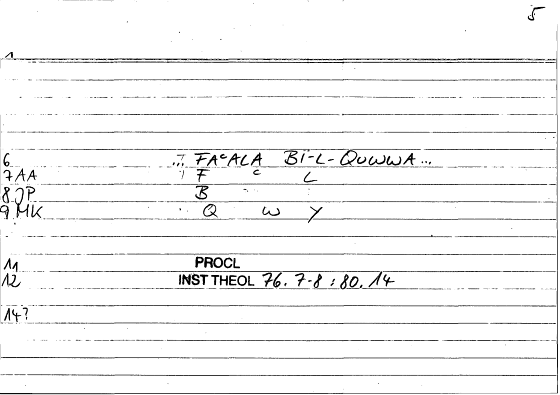 5
1
6 ... FAᶜALA Bi-L-QUWWA...
7 AA F ᶜ L
8 JP B
9 MK Q W Y
11 PROCL
12 INST THEOL 76. 7-8 : 80. 14
14?